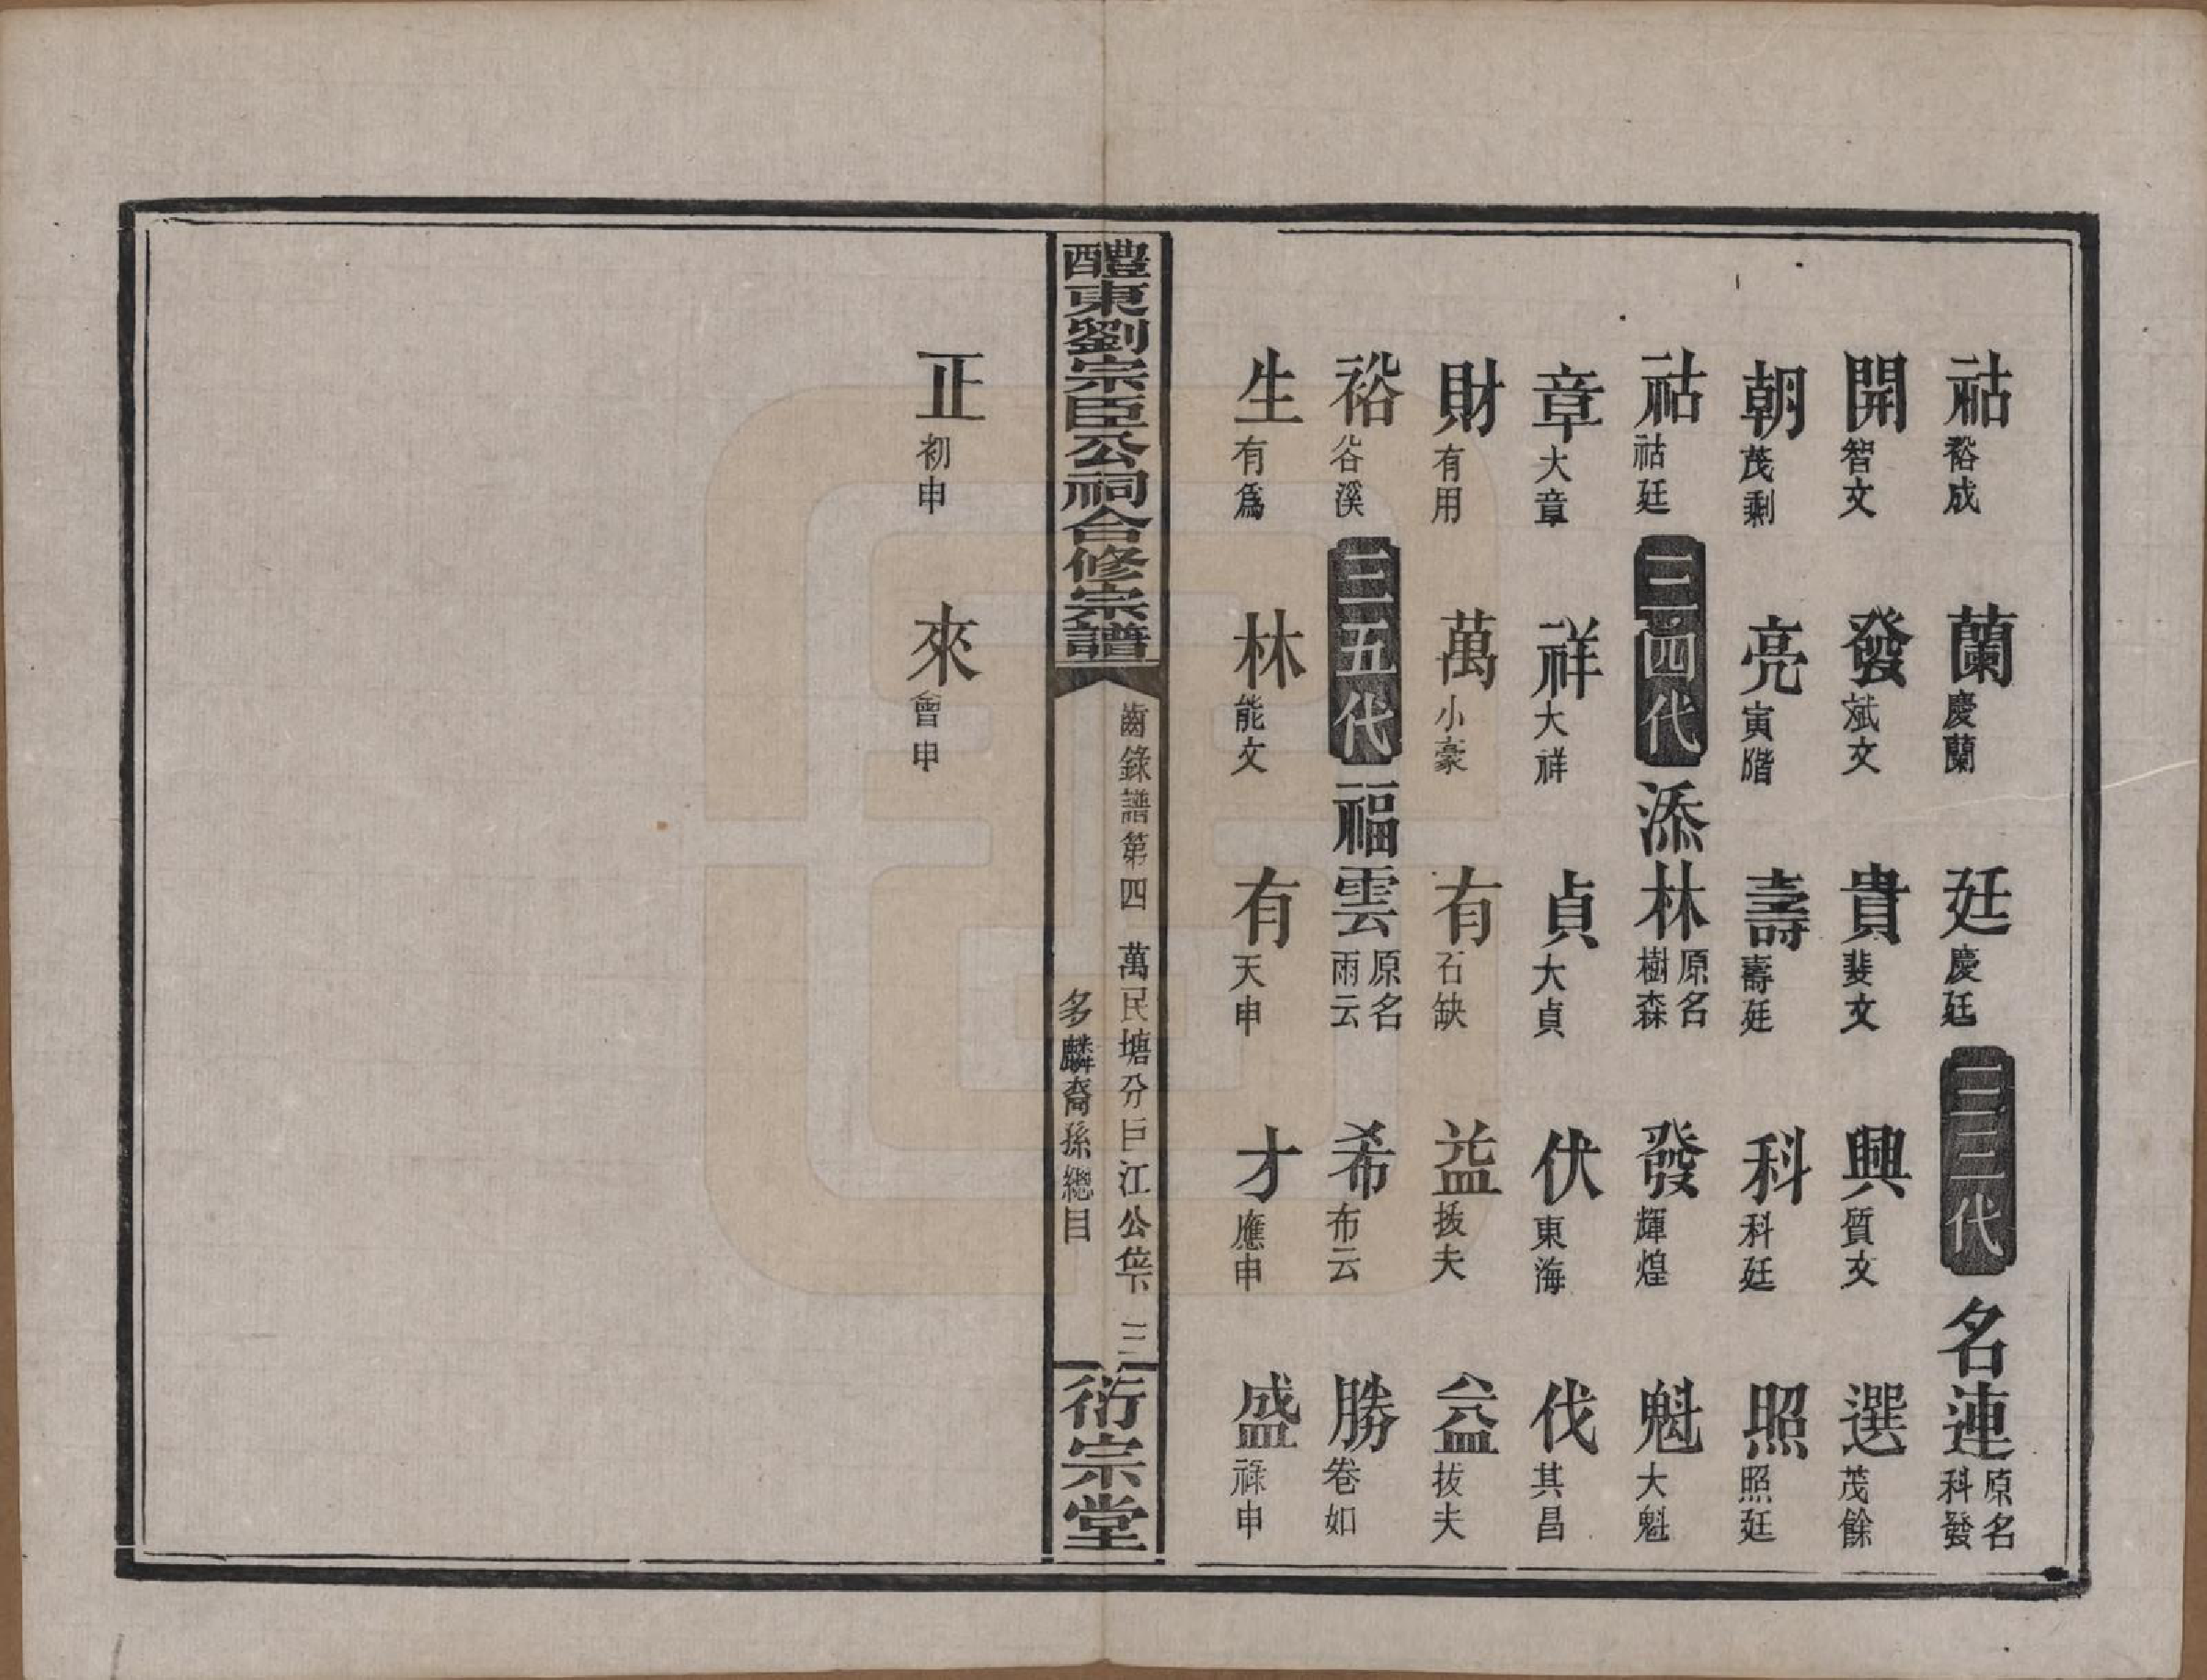 祜裕成 蘭慶蘭 廷慶廷 三三代 名連原名科發
開智文 發斌文 貴斐文 興質文 選茂餘
朝茂剩 亮寅階 壽壽廷 科科廷 照照廷
祜祜廷 三四代 添林原名樹森 發輝煌 魁大魁
章大章 祥大祥 貞大貞 伏東海 伐其昌
財有用 萬小豪 有石缺 益拔夫 益拔夫
裕谷溪 三五代 福雲原名雨云 希布云 勝卷如
生有爲 林能文 有天申 才應申 盛祿申
醴東劉宗臣公祠合修宗譜
齒錄譜第四 萬民塘分巨江公位下 三
多麟裔孫總目
衍宗堂
正初申 來會申